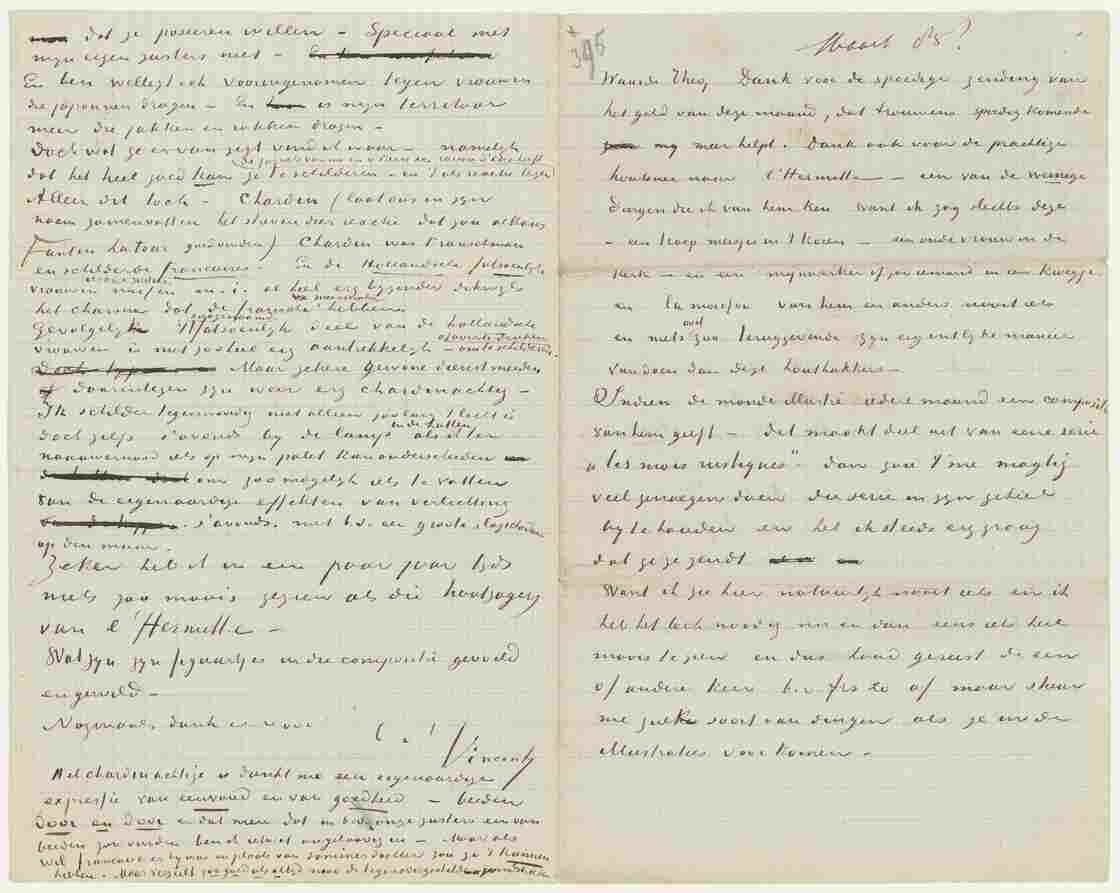 dat je poseeren willen – Speciaal met
mijn eigen zusters niet –
En ben welligt ook vooringenomen tegen vrouwen
die japonnen dragen – En is mijn terrein
meer die jakken en rokken dragen –
Doch wat ge er van zegt vind ik waar – namelijk
dat het heel goed kan ze te schilderen – en 't als reactie tegen
Alleen dit toch – Chardin (laat ons in zijn
naam zamenvatten het streven dier reactie dat zou althans
Fantin Latour goedvinden) Chardin was Franschman
en schilderde françaises. En de Hollandsche fatsoenlijke
vrouwen missen m.i. al heel erg bijzonder dikwijls
het charme dat de françaises hebben.
Gevolgelijk 't fatsoenlijk deel van de hollandsche
vrouwen is niet zoo heel erg aantrekkelijk – om te schilderen
Maar zekere gewone dienstmeiden
daarentegen zijn weer erg chardinachtig –
Ik schilder tegenwoordig niet alleen zoolang 't licht is
doch zelfs s'avonds bij de lamp in de hutten als ik ter
naauwernood iets op mijn palet kan onderscheiden
om zoo mogelijk iets te vatten
van de eigenaardige effekten van verlichting
s'avonds. met b.v. een groote slagschaduw
op den muur.
Zeker heb ik in een paar jaar tijds
niets zoo moois gezien als die houtzagers
van l'Hermitte –
Wat zijn zijn figuurtjes in die compositie gevoeld
en gewild –
Nogmaals dank er voor
Vincent
Het chardinachtige is dunkt me een eigenaardige
expressie van eenvoud en van goedheid – beiden
door en door en dat men dat in b.v. onze zusters een van
beiden zou vinden ben ik ietwat ongeloovig en – Maar als
Wil francaise er bij was in plaats van domines dochter zou ze 't kunnen
hebben. Maar verzeilt zoo goed als altijd naar de tegenovergestelde
395
Maart 85?
Waarde Theo, Dank voor de spoedige zending van
het geld van deze maand, dat trouwens spoedig komende
mij meer helpt. Dank ook voor de prachtige
houtsnee naar l'Hermitte – een van de weinige
dingen die ik van hem ken want ik zag slechts deze
– een troep meisjes in 't koren – een oude vrouw in de
kerk – en een mijnwerker of zoo iemand in een kroegje
en la moisson van hem en anders nooit iets
en niets ooit zoo teruggevende zijn eigentlijke manier
van doen dan deze houthakkers –
Indien de monde illustré iedere maand een compositie
van hem geeft – dit maakt deel uit van eene serie
"les mois rustiques" – dan zou 't me magtig
veel genoegen doen die serie in zijn geheel
bij te houden en heb ik steeds erg graag
dat ge ze zendt
Want ik zie hier natuurlijk nooit iets en ik
heb het toch noodig nu en dan eens iets heel
moois te zien en dus houd gerust de een
of andere keer b.v. frs 20 af maar stuur
me zulk soort van dingen als ze in de
illustraties voorkomen –